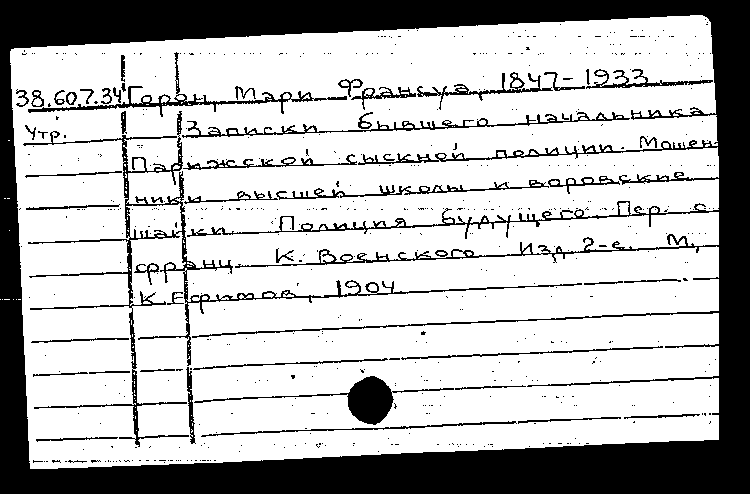 38.60.7.34 Горон, Мари Франсуа, 1847-1933.
Утр. Записки бывшего начальника
Парижской сыскной полиции. Мошен-
ники высшей школы и воровские
шайки. Полиция будущего. Пер. с
франц. К. Военского. Изд. 2-е. М.,
К. Ефимов, 1904